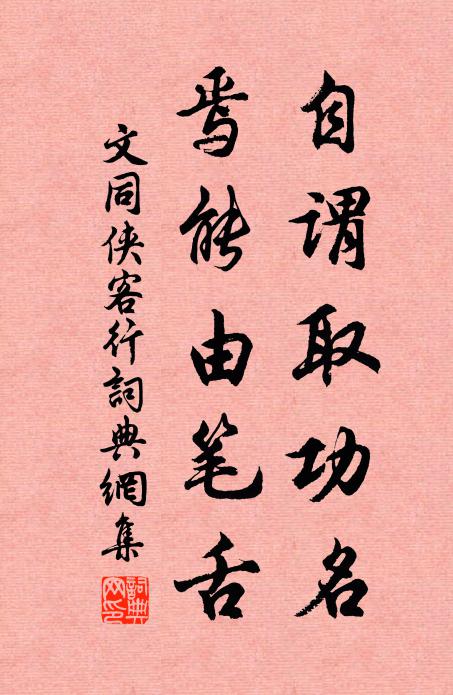 自谓取功名
焉能由笔舌
文同侠客行词典網集
詞典网印